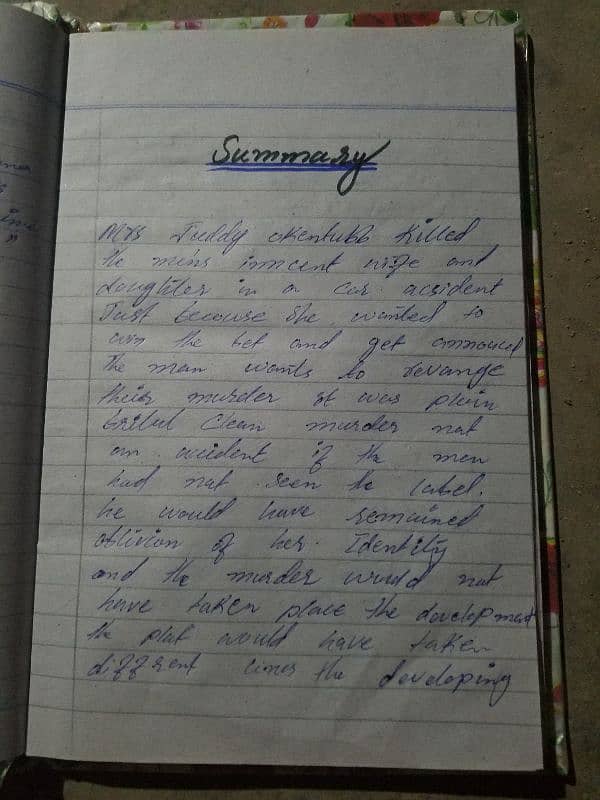 Summary
Mrs Juddy Kentubb Killed
the mens inncent wife and
daughter in a car accident
Just because she wanted to
win the bet and get annouced
The man wants to revange
their murder it was plain
brutul clean murder not
an accident if the men
had not seen the label.
he would have remained
oblivion of her. Identity
and the murder would not
have taken place the development
the plat would have taken
different lines the developing